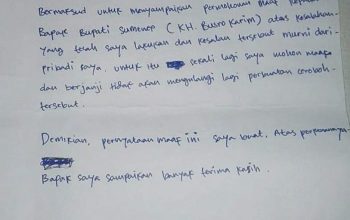 Bermaksud untuk menyampaikan permohonan maaf kepada
Bapak Bupati Sumenep (KH. Busro Karim) atas kesalahan
yang telah saya lakukan dan kesalan tersebut murni dari
pribadi saya, untuk itu sekali lagi saya mohon maaf
dan berjanji tidak akan mengulangi lagi perbuatan ceroboh
tersebut.
Demikian, pernyataan maaf ini saya buat, Atas
Bapak saya sampaikan banyak terima kasih.